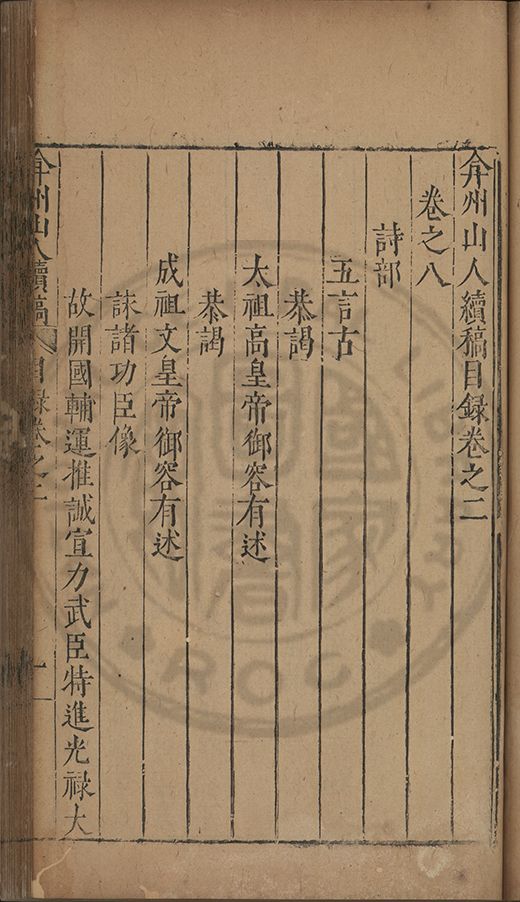 弇州山人續稿目録卷之二
卷之八
詩部
五言古
恭謁
太祖高皇帝御容有述
恭謁
成祖文皇帝御容有述
詠諸功臣像
故開國輔運推誠宣力武臣特進光禄大
弇州山人續稿 目録卷之二 一